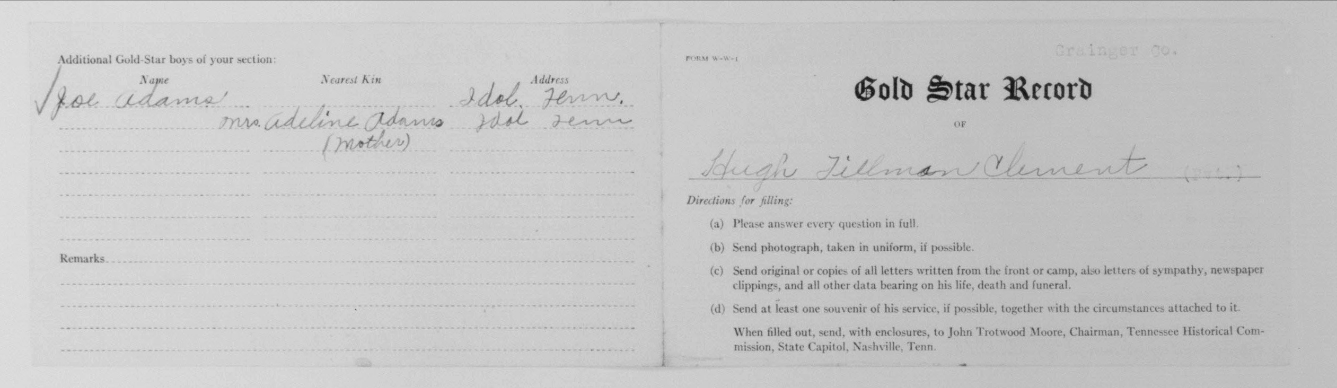 Additional Gold-Star boys of your section:
Name Nearest Kin Address
✓ Joe Adams Idol, Tenn.
Mrs. Adeline Adams Idol Tenn
(Mother)
Remarks
FORM W-W-1
Grainger Co.
Gold Star Record
OF
Hugh Tillman Clement (Pvt.)
Directions for filling:
(a) Please answer every question in full.
(b) Send photograph, taken in uniform, if possible.
(c) Send original or copies of all letters written from the front or camp, also letters of sympathy, newspaper
clippings, and all other data bearing on his life, death and funeral.
(d) Send at least one souvenir of his service, if possible, together with the circumstances attached to it.
When filled out, send, with enclosures, to John Trotwood Moore, Chairman, Tennessee Historical Com-
mission, State Capitol, Nashville, Tenn.